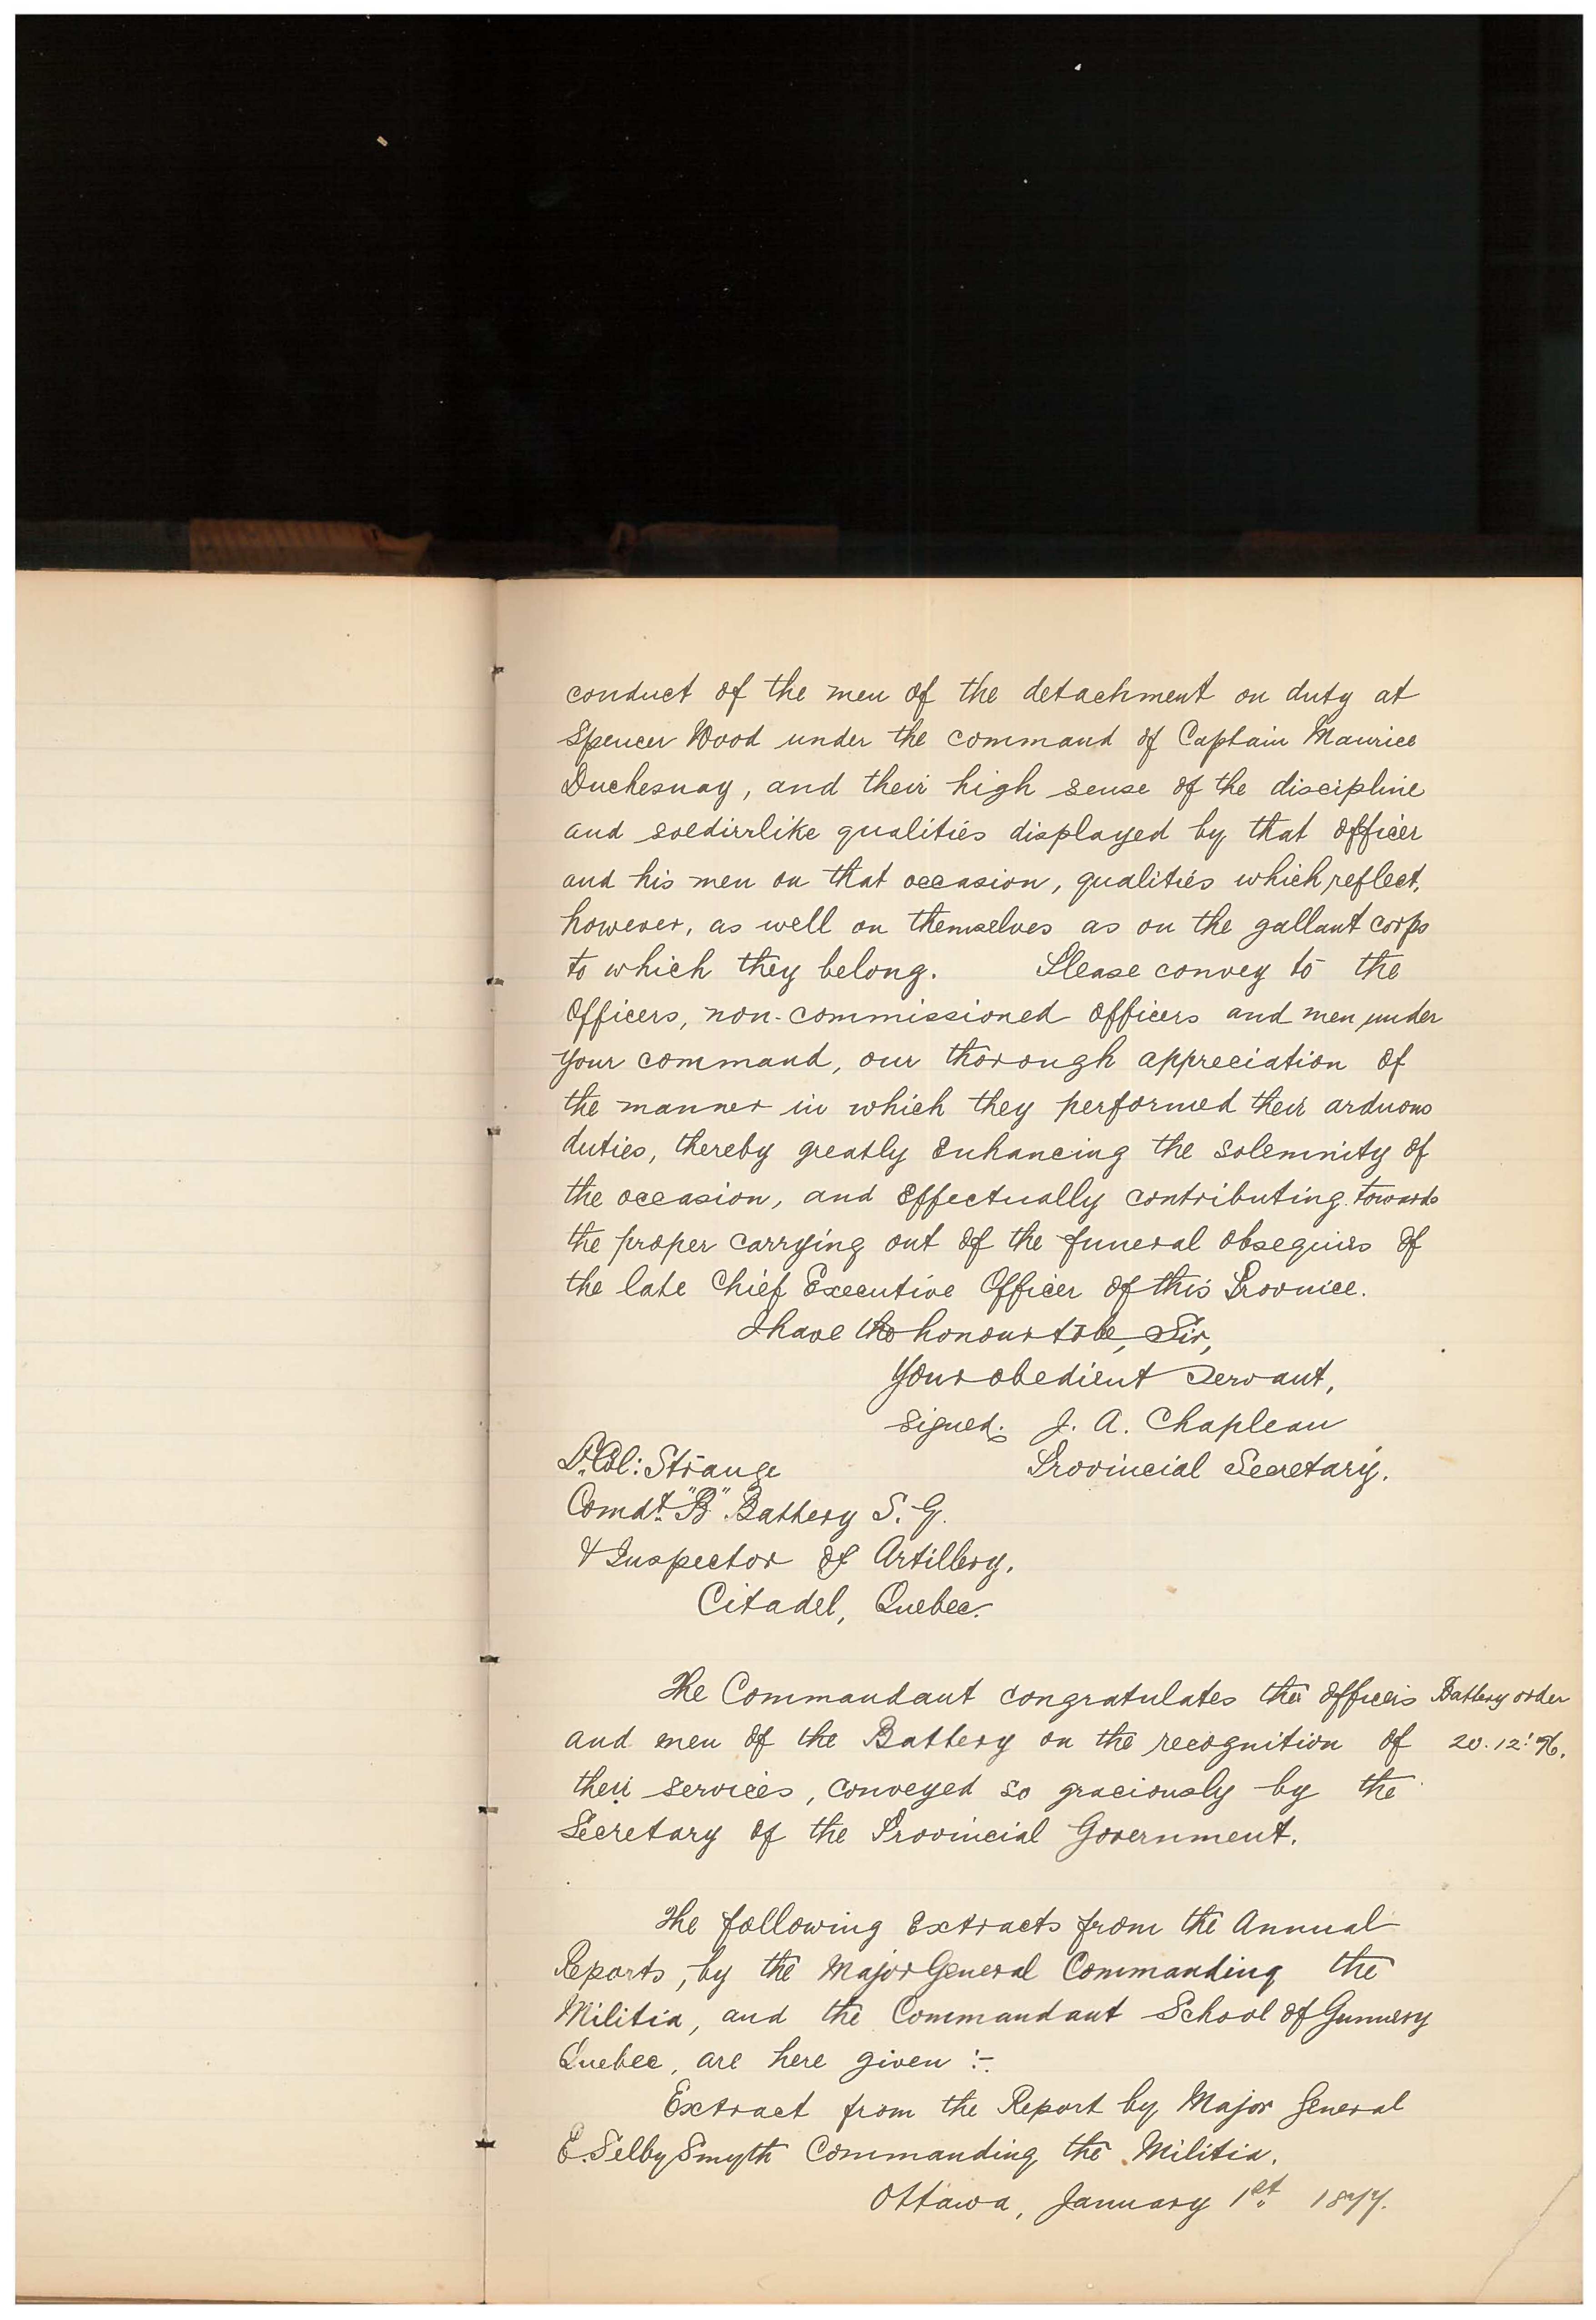 conduct of the men of the detachment on duty at
Spencer Wood under the command of Captain Maurice
Duchesnay, and their high sense of the discipline
and soldierlike qualities displayed by that officer
and his men on that occasion, qualities which reflect,
however, as well on themselves as on the gallant corps
to which they belong. Please convey to the
Officers, non-commissioned officers and men under
your command, our thorough appreciation of
the manner in which they performed their arduous
duties, thereby greatly enhancing the solemnity of
the occasion, and effectually contributing towards
the proper carrying out of the funeral obsequies of
the late Chief Executive Officer of this Province.
I have the honour to be, Sir,
Your obedient Servant,
signed. J. A. Chapleau
Lt. Col: Strange Provincial Secretary.
Comdt. "B" Battery S. G.
& Inspector of Artillery.
Citadel, Quebec.
The Commandant congratulates the officers Battery order
and men of the Battery on the recognition of 20.12.'76.
their services, conveyed so graciously by the
Secretary of the Provincial Government.
The following Extracts from the Annual
Reports, by the Major General Commanding the
Militia, and the Commandant School of Gunnery
Quebec, are here given :-
Extract from the Report by Major General
E. Selby Smyth Commanding the Militia.
Ottawa, January 1st 1877.